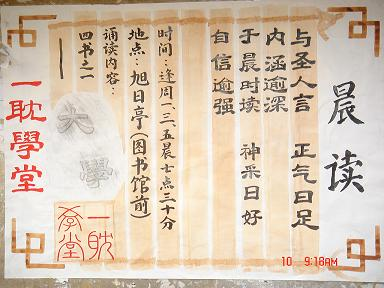 晨读
与圣人言 正气日足
内涵逾深
于晨时读 神采日好
自信逾强
时间:逢周一.三.五晨七点三十分
地点:旭日亭(图书馆前)
诵读内容:
四书之一
——
大學
一耽學堂
一耽學堂
10 9:18AM